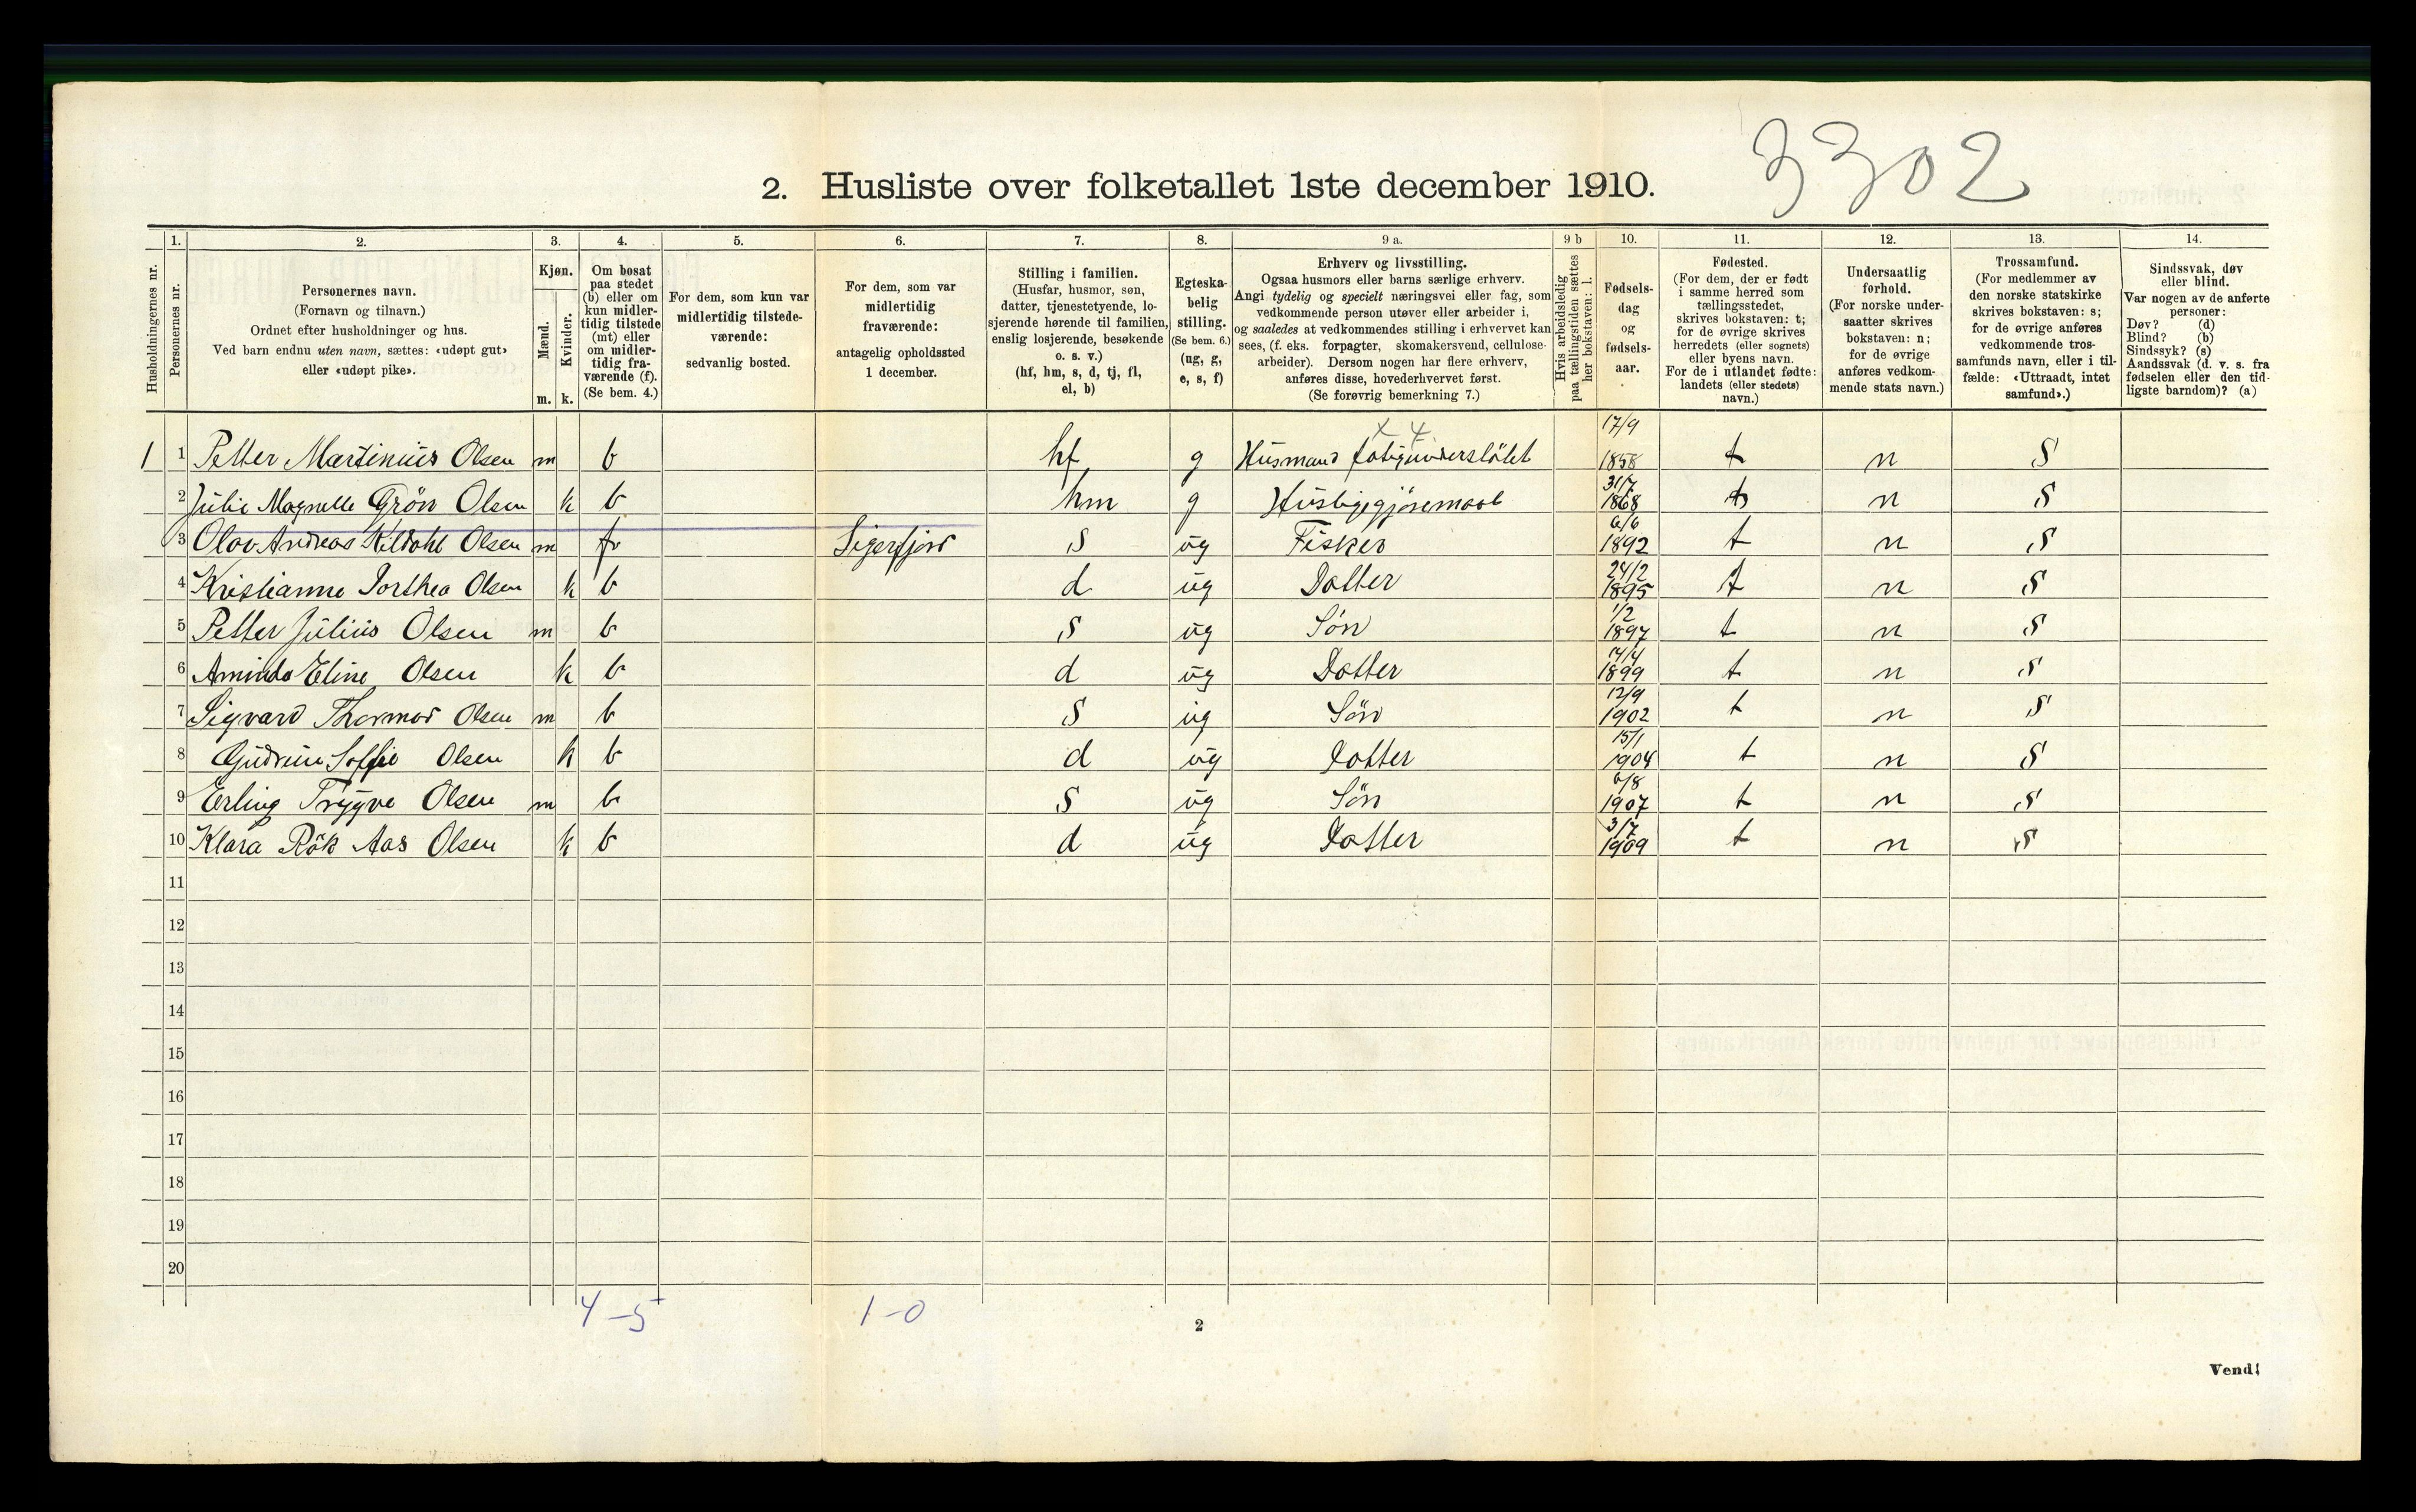 3302
2. Husliste over folketallet 1ste december 1910.
Husholdningernes nr.
1.
Personernes nr.
2.
Personernes navn.
(Fornavn og tilnavn.)
Ordnet efter husholdninger og hus.
Ved barn endnu uten navn, sættes: «udøpt gut»
eller «udøpt pike».
3.
Kjøn.
Mænd.
Kvinder.
m. k.
4.
Om bosat
paa stedet
(b) eller om
kun midler-
tidig tilstede
(mt) eller
om midler-
tidig fra-
værende (f).
(Se bem. 4.)
5.
For dem, som kun var
midlertidig tilstede-
værende:
sedvanlig bosted.
6.
For dem, som var
midlertidig
fraværende:
antagelig opholdssted
1 december.
7.
Stilling i familien.
(Husfar, husmor, søn,
datter, tjenestetyende, lo-
sjerende hørende til familien,
enslig losjerende, besøkende
o. s. v.)
(hf, hm, s, d, tj, fl,
el, b)
8.
Egteska-
belig
stilling.
(Se bem. 6.)
(ug, g,
e, s, f)
9 a.
Erhverv og livsstilling.
Ogsaa husmors eller barns særlige erhverv.
Angi tydelig og specielt næringsvei eller fag, som
vedkommende person utøver eller arbeider i,
og saaledes at vedkommendes stilling i erhvervet kan
sees, (f. eks. forpagter, skomakersvend, cellulose-
arbeider). Dersom nogen har flere erhverv,
anføres disse, hovederhvervet først.
(Se forøvrig bemerkning 7.)
9 b
Hvis arbeidsledig
paa tællingstiden sættes
her bokstaven: l.
10.
Fødsels-
dag
og
fødsels-
aar.
11.
Fødested.
(For dem, der er født
i samme herred som
tællingsstedet,
skrives bokstaven: t;
for de øvrige skrives
herredets (eller sognets)
eller byens navn.
For de i utlandet fødte:
landets (eller stedets)
navn.)
12.
Undersaatlig
forhold.
(For norske under-
saatter skrives
bokstaven: n;
for de øvrige
anføres vedkom-
mende stats navn.)
13.
Trossamfund.
(For medlemmer av
den norske statskirke
skrives bokstaven: s;
for de øvrige anføres
vedkommende tros-
samfunds navn, eller i til-
fælde: «Uttraadt, intet
samfund».)
14.
Sindssvak, døv
eller blind.
Var nogen av de anførte
personer:
Døv? (d)
Blind? (b)
Sindssyk? (s)
Aandssvak (d. v. s. fra
fødselen eller den tid-
ligste barndom)? (a)
1 1 Petter Martinius Olsen m b hf g Husmand x 4 17/9 1858 t n S
2 Julie Magnelle Grön Olsen k b hm g 31/7 1868 t n S
3 Olav Andreas Kildahl Olsen m f Sigerfjord S ug Fisker 6/6 1892 t n S
4 Kristianne Dorthea Olsen k b d ug Datter 24/2 1895 t n S
5 Petter Julius Olsen m b S ug Sön 1/2 1897 t n S
6 Aminda Eline Olsen k b d ug Datter 14/4 1899 t n S
7 Sigvard Thormod Olsen m b S ug Sön 12/9 1902 t n S
8 Gudrun Soffie Olsen k b d ug Datter 15/1 1904 t n S
9 Erling Trygve Olsen m b S ug Sön 6/8 1907 t n S
10 Klara Rök Aas Olsen k b d ug Datter 3/7 1909 t n S
11
12
13
14
15
16
17
18
19
20
4-5 1-0
2
Vend!